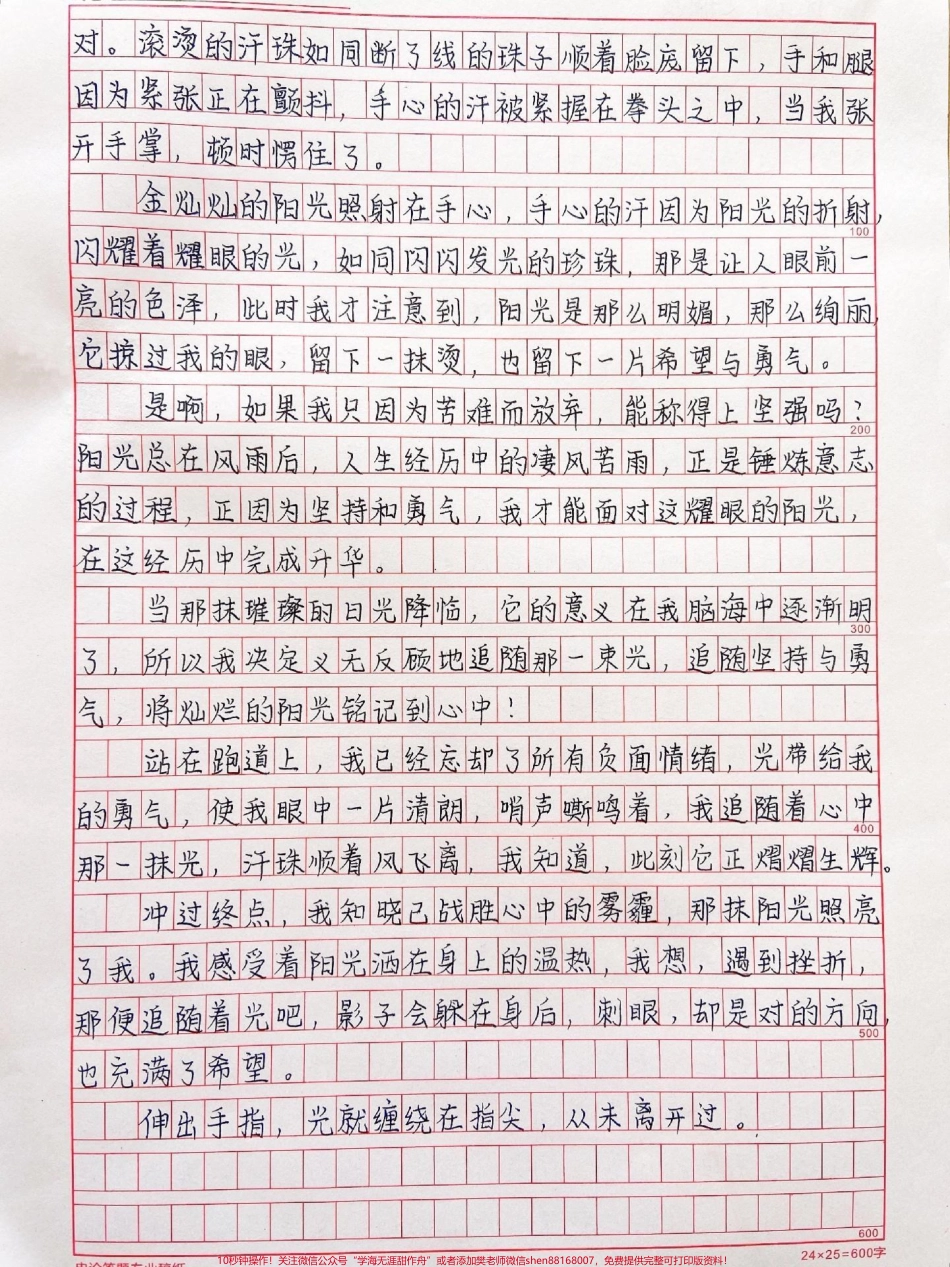 对。滚烫的汗珠如同断了线的珠子顺着脸庞留下，手和腿
因为紧张正在颤抖，手心的汗被紧握在拳头之中，当我张
开手掌，顿时愣住了。
金灿灿的阳光照射在手心，手心的汗因为阳光的折射，
100
闪耀着耀眼的光，如同闪闪发光的珍珠，那是让人眼前一
亮的色泽，此时我才注意到，阳光是那么明媚，那么绚丽，
它掠过我的眼，留下一抹烫，也留下一片希望与勇气。
是啊，如果我只因为苦难而放弃，能称得上坚强吗？
200
阳光总在风雨后，人生经历中的凄风苦雨，正是锤炼意志
的过程，正因为坚持和勇气，我才能面对这耀眼的阳光，
在这经历中完成升华。
当那抹璀璨的日光降临，它的意义在我脑海中逐渐明
300
了，所以我决定义无反顾地追随那一束光，追随坚持与勇
气，将灿烂的阳光铭记到心中！
站在跑道上，我已经忘却了所有负面情绪，光带给我
的勇气，使我眼中一片清朗，哨声嘶鸣着，我追随着心中
400
那一抹光，汗珠顺着风飞离，我知道，此刻它正熠熠生辉。
冲过终点，我知晓已战胜心中的雾霾，那抹阳光照亮
了我。我感受着阳光洒在身上的温热，我想，遇到挫折，
那便追随着光吧，影子会躲在身后，刺眼，却是对的方向，
500
也充满了希望。
伸出手指，光就缠绕在指尖，从未离开过。
600
24×25=600字
10秒钟操作！关注微信公众号“学海无涯甜作舟”或者添加樊老师微信shen88168007，免费提供完整可打印版资料！